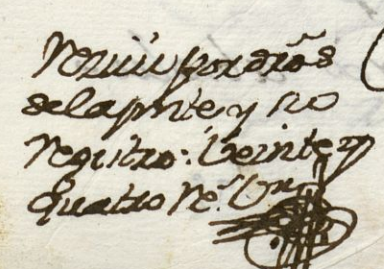 Reciui por dr̃os
de la pnte y su
registro: Veinte y
quatro rs. Vn